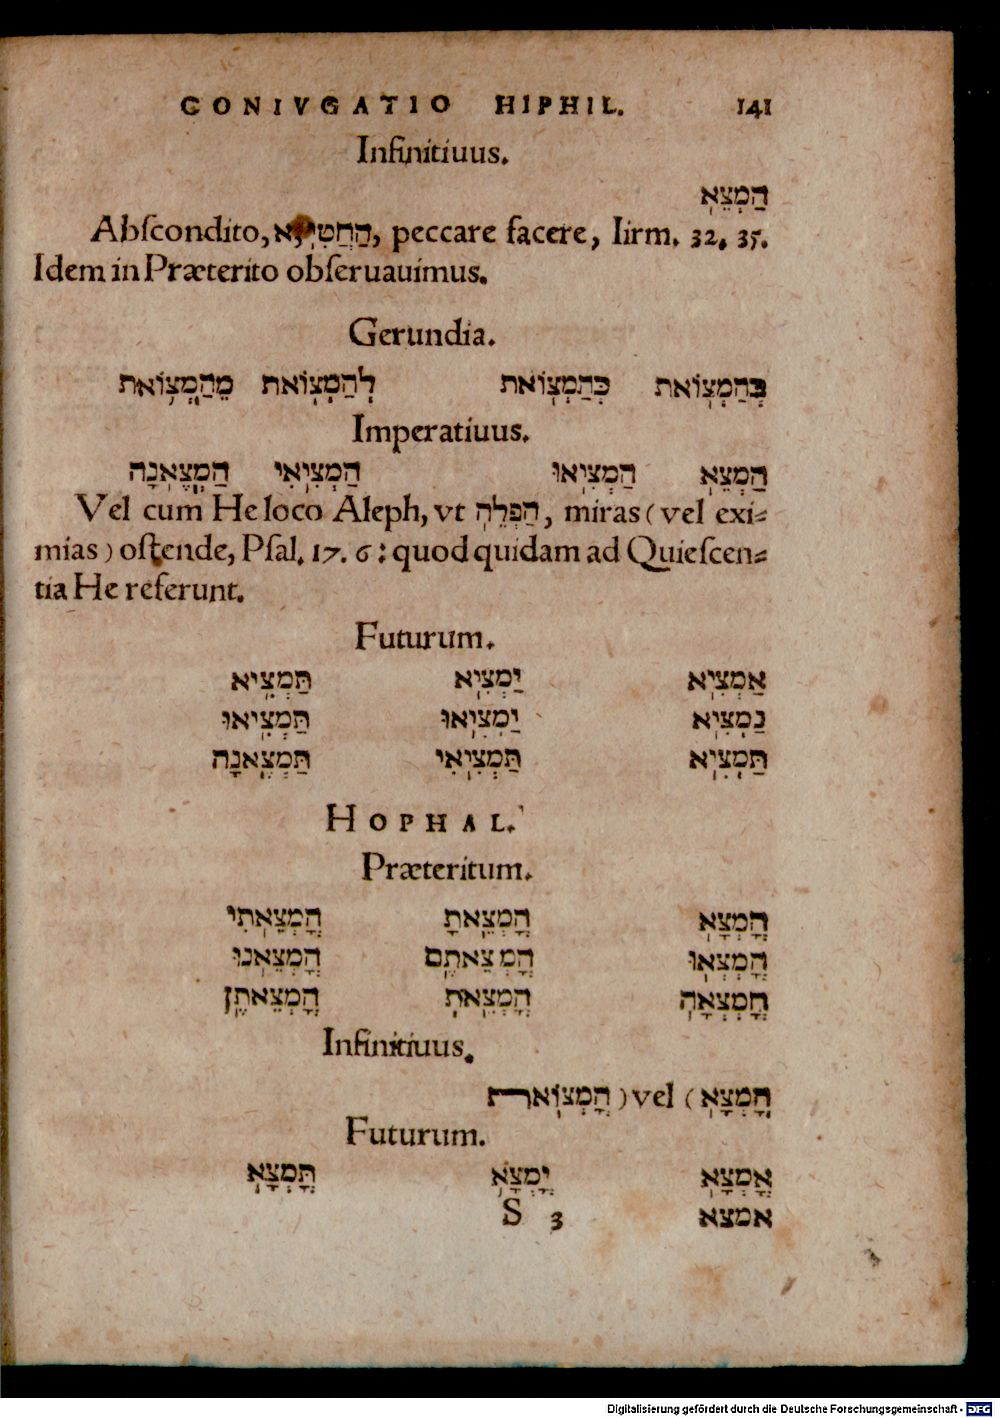 CONIVGATIO HIPHIL. 141
Infinitiuus.
הַמְצֵא
Abſcondito, הַחֲטִיא, peccare facere, Iirm. 32. 35.
Idem in Præterito obſeruauimus.
Gerundia.
בְּהַמְצוֹאת כְּהַמְצוֹאת לְהַמְצוֹאת מֵהַמְצוֹאת
Imperatiuus.
הַמְצֵא הַמְצִיאוּ הַמְצִיאִי הַמְצֶאנָה
Vel cum He loco Aleph, vt הַפְלֵה, miras (vel exi⸗
mias) oſtende, Pſal. 17. 6: quod quidam ad Quieſcen⸗
tia He referunt.
Futurum.
אַמְצִיא יַמְצִיא תַּמְצִיא
נַמְצִיא יַמְצִיאוּ תַּמְצִיאוּ
תַּמְצִיא תַּמְצִיאִי תַּמְצֶאנָה
HOPHAL.
Præteritum.
הֻמְצָא הָמְצֵאתָ הָמְצֵאתִי
הָמְצְאוּ הָמְצֵאתֶם הָמְצֵאנוּ
הָמְצְאָה הָמְצֵאת הָמְצֵאתֶן
Infinitiuus.
הָמְצָא (vel) הָמְצוֹאת
Futurum.
אָמְצָא יָמְצָא תָּמְצָא
S 3 אמצא
Digitalisierung gefördert durch die Deutsche Forschungsgemeinschaft - DFG